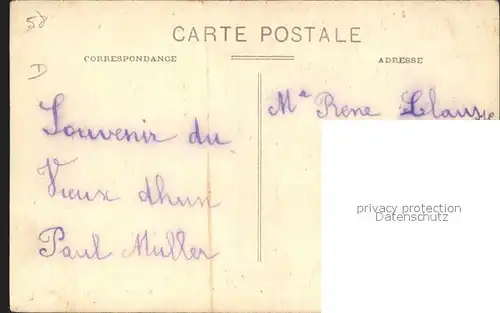 58
D
CARTE POSTALE
CORRESPONDANCE
ADRESSE
Souvenir du
Vieux dhun
Paul Müller
Mr Rene
privacy protection
Datenschutz